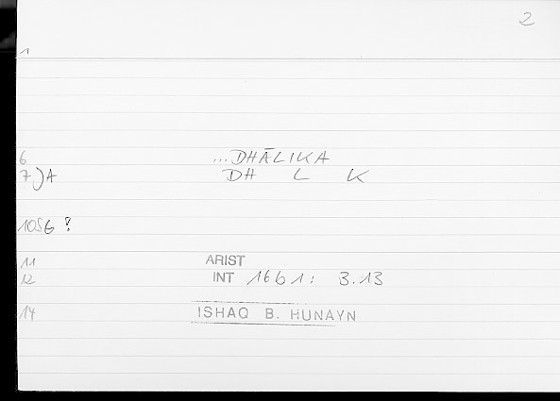 2
1
6 ...DHĀLIKA
7)A DH L K
10SG !
11 ARIST
12 INT 16b1: 3.13
14 ISHAQ B. HUNAYN